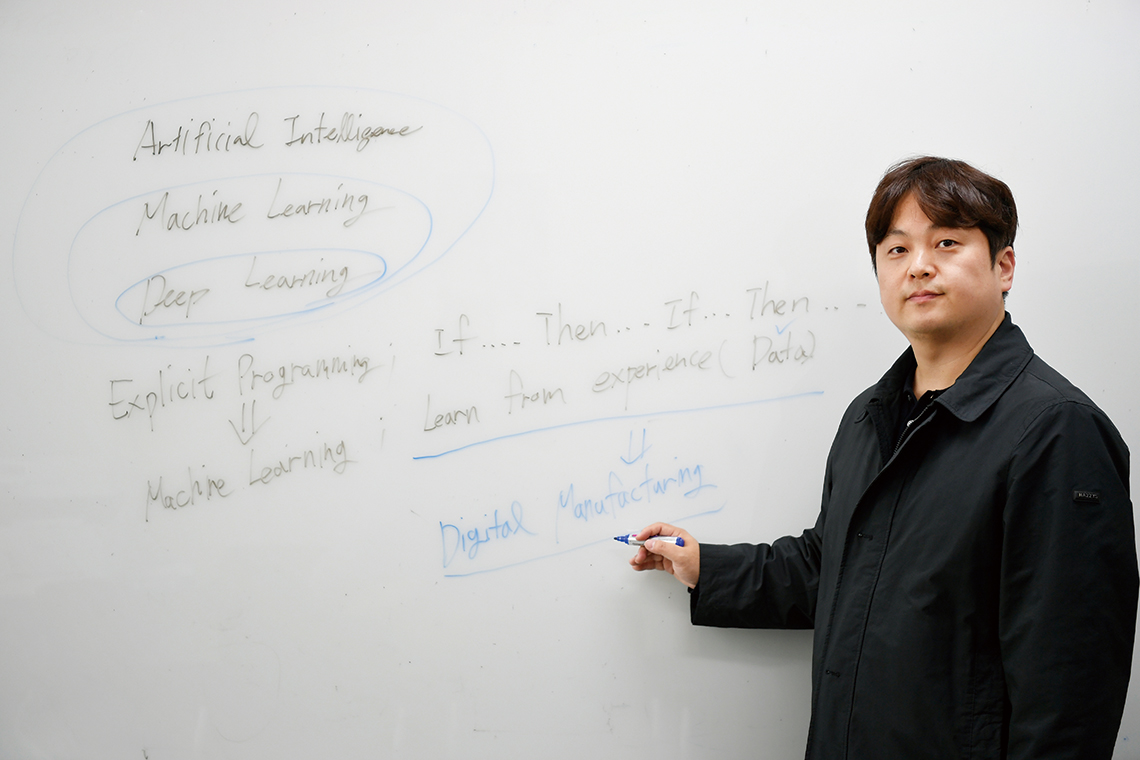 Artificial Intelligence
Machine Learning
Deep Learning
Explicit Programming ; If .... Then ... If ... Then ...
Machine Learning ; Learn from experience ( Data)
Digital Manufacturing